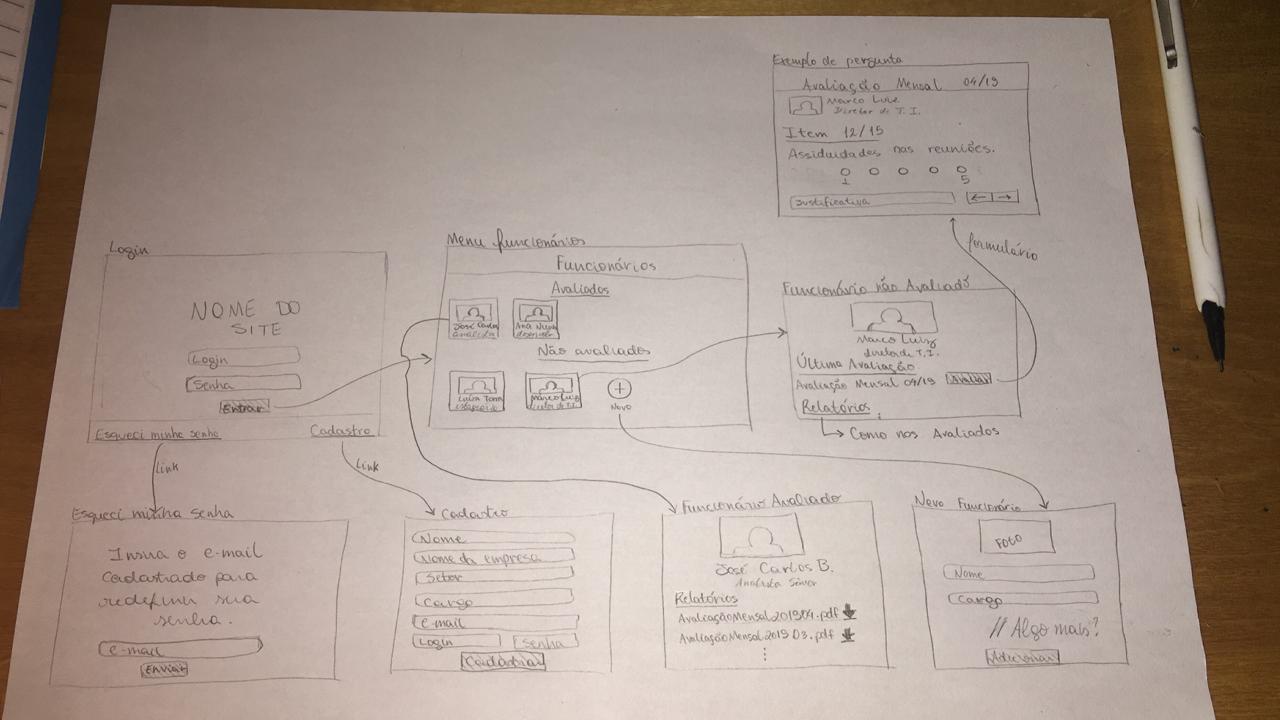 Exemplo de pergunta
Avaliação Mensal 04/19
Marco Luiz
Diretor de T.I.
Item 12/15
Assiduidades nas reuniões.
1 5
Justificativa
Login
NOME DO
SITE
Login
Senha
Entrar
Esqueci minha senha
Cadastro
Link
Link
Menu funcionários
Funcionários
Avaliados
José Carlos
analista
Ana
Não avaliados
Luiza
Marco Luiz
Novo
Funcionário não Avaliado
Marco Luiz
diretor de T.I.
Última Avaliação
Avaliação Mensal 04/19 Avaliar
Relatórios
Como nos Avaliados
formulário
Esqueci minha senha
Insira o e-mail
cadastrado para
redefinir sua
senha.
e-mail
Enviar
Cadastro
Nome
Nome da empresa
Setor
Cargo
E-mail
Login Senha
Cadastrar
Funcionário Avaliado
José Carlos B.
Analista Sênior
Relatórios
AvaliaçãoMensal201904.pdf
AvaliaçãoMensal201903.pdf
Novo Funcionário
FOTO
Nome
Cargo
// Algo mais?
Adicionar